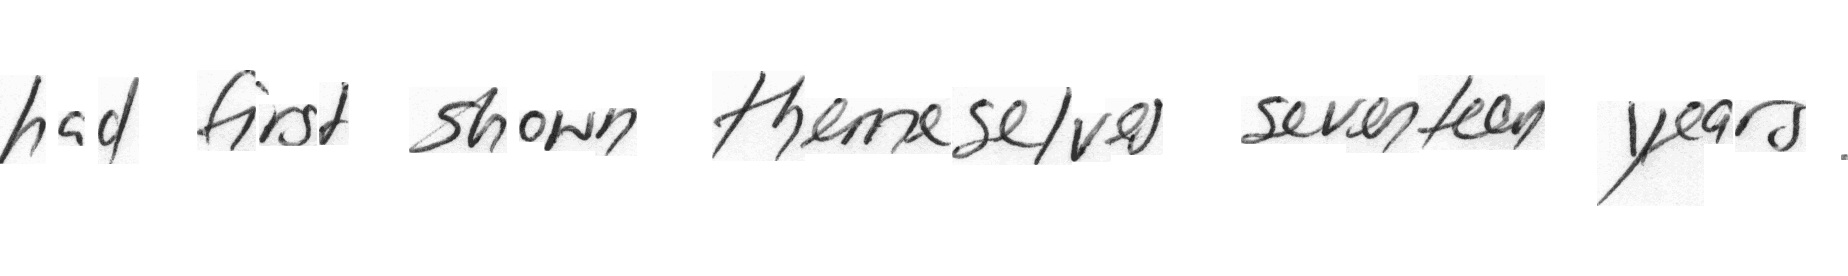 had first shown themeselves seventeen years .